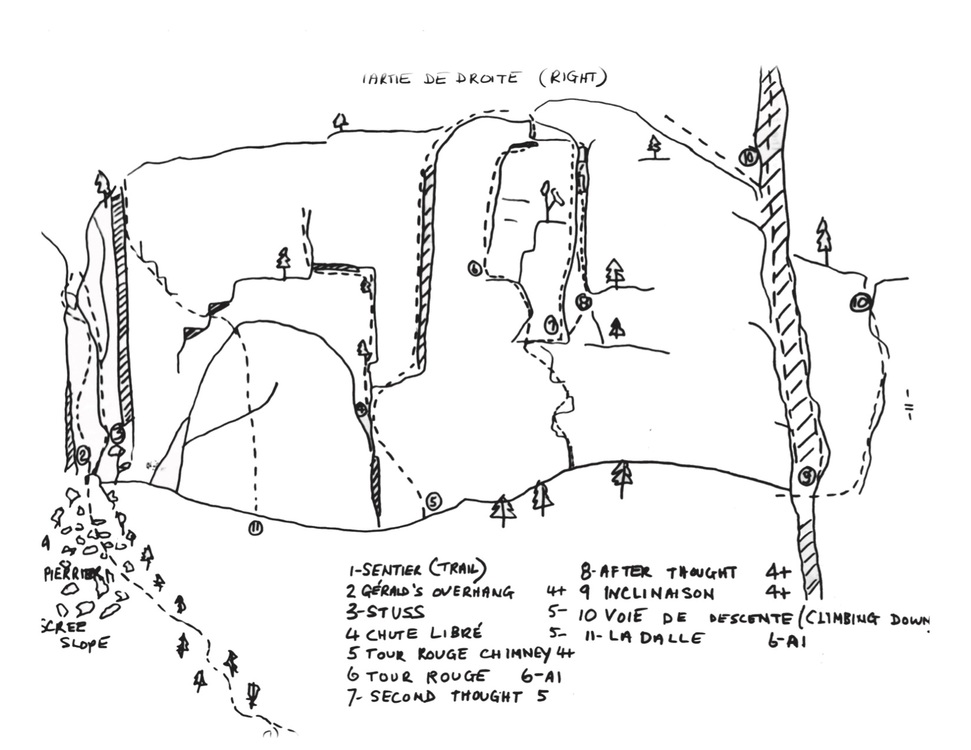 PARTIE DE DROITE (RIGHT)
10
6
7
8
10
4
3
2
5
11
9
PIERRIER
SCREE
SLOPE
1-SENTIER (TRAIL)
2 GÉRALD'S OVERHANG 4+
3-STUSS 5-
4 CHUTE LIBRÉ 5-
5 TOUR ROUGE CHIMNEY 4+
6 TOUR ROUGE 6-A1
7- SECOND THOUGHT 5
8-AFTER THOUGHT 4+
9 INCLINAISON 4+
10 VOIE DE DESCENTE (CLIMBING DOWN
11- LA DALLE 6-A1